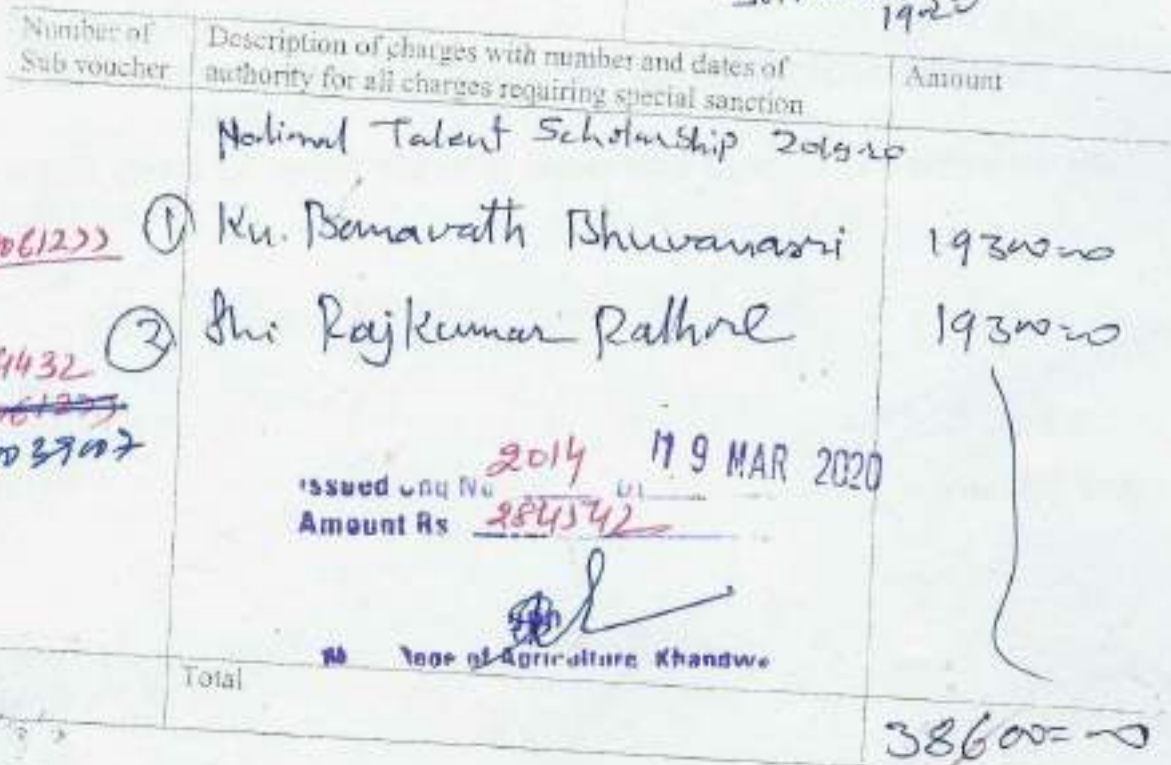 1920
Number of Sub voucher
Description of charges with number and dates of authority for all charges requiring special sanction
Amount
National Talent Scholarship 2019-20
① Ku. Banavath Bhuvanasri 19300=00
② Shri Rajkumar Rathore 19300=00
Issued Chq No 2014 Dt 19 MAR 2020
Amount Rs 284542
of Agriculture Khandwa
Total
38600=00